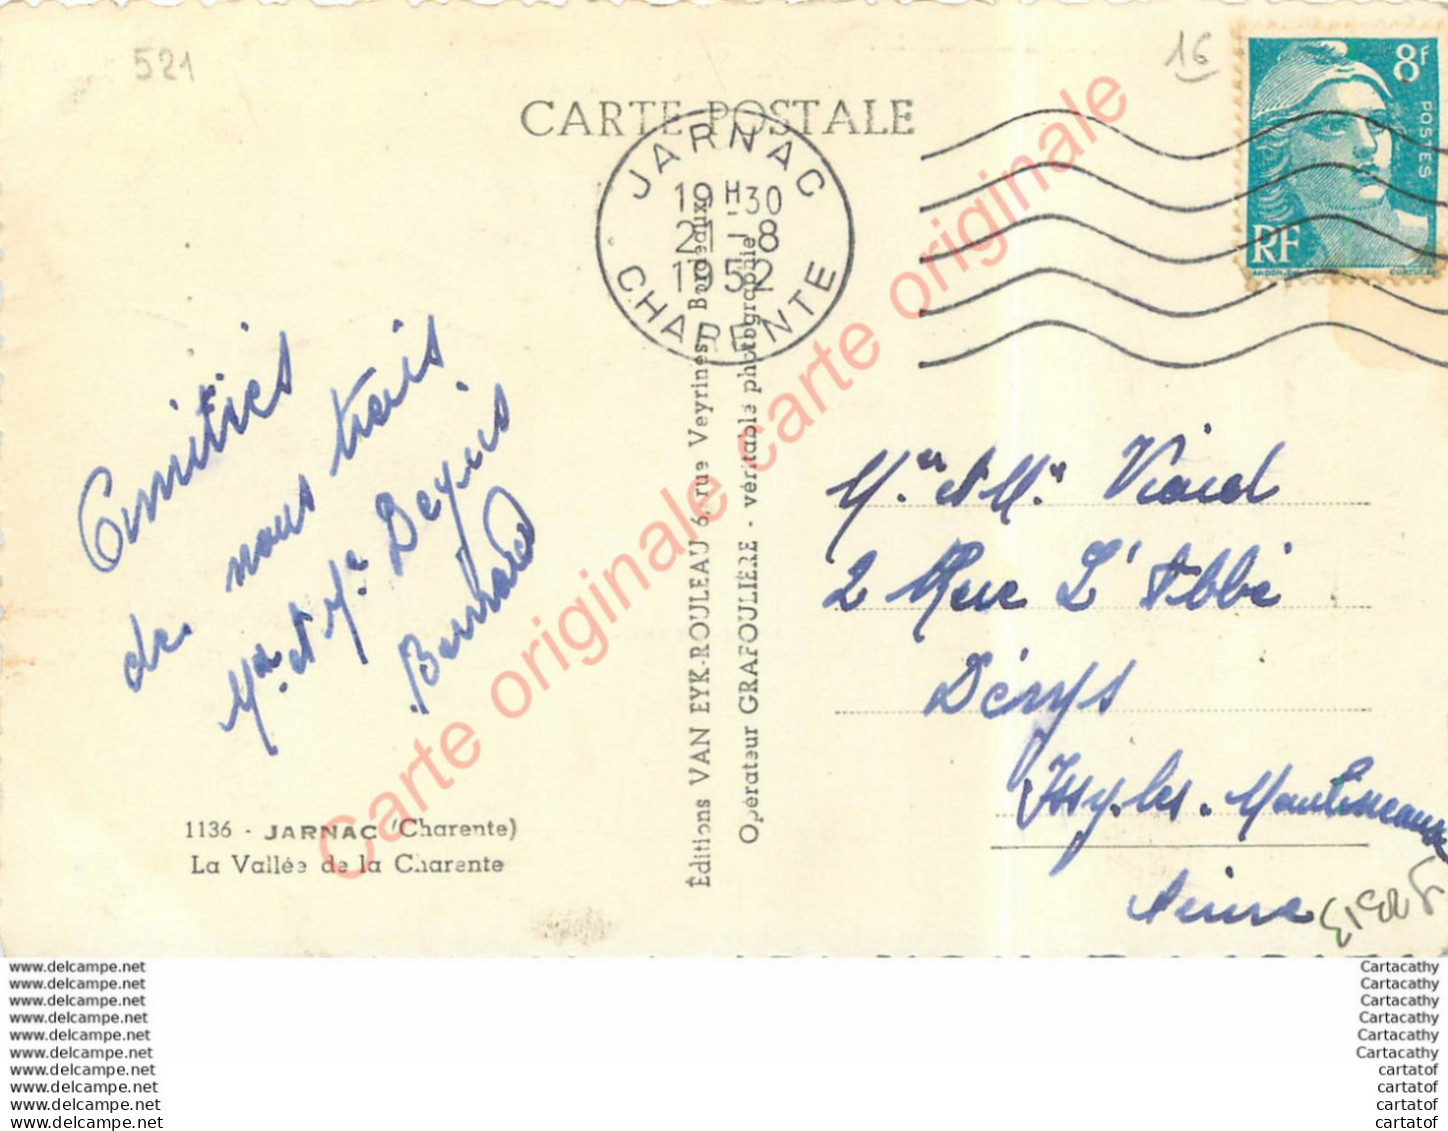 521
16
CARTE POSTALE
8F
POSTES
RF
JARNAC
19H30
21-8
1952
CHARENTE
Amitiés
de nous trois
Mr et Me Deyris
Bernard
1136 - JARNAC (Charente)
La Vallée de la Charente
Éditions VAN EYK-ROULEAU 6, rue Veyrines Bordeaux
Opérateur GRAFOULIÈRE - véritable photographie
Mr et Me Viard
2 Rue L'Abbé
Dérys
Issy-les-Moulineaux
Seine
Carte originale carte originale carte originale
www.delcampe.net
www.delcampe.net
www.delcampe.net
www.delcampe.net
www.delcampe.net
www.delcampe.net
www.delcampe.net
www.delcampe.net
www.delcampe.net
www.delcampe.net
Cartacathy
Cartacathy
Cartacathy
Cartacathy
Cartacathy
Cartacathy
cartatof
cartatof
cartatof
cartatof